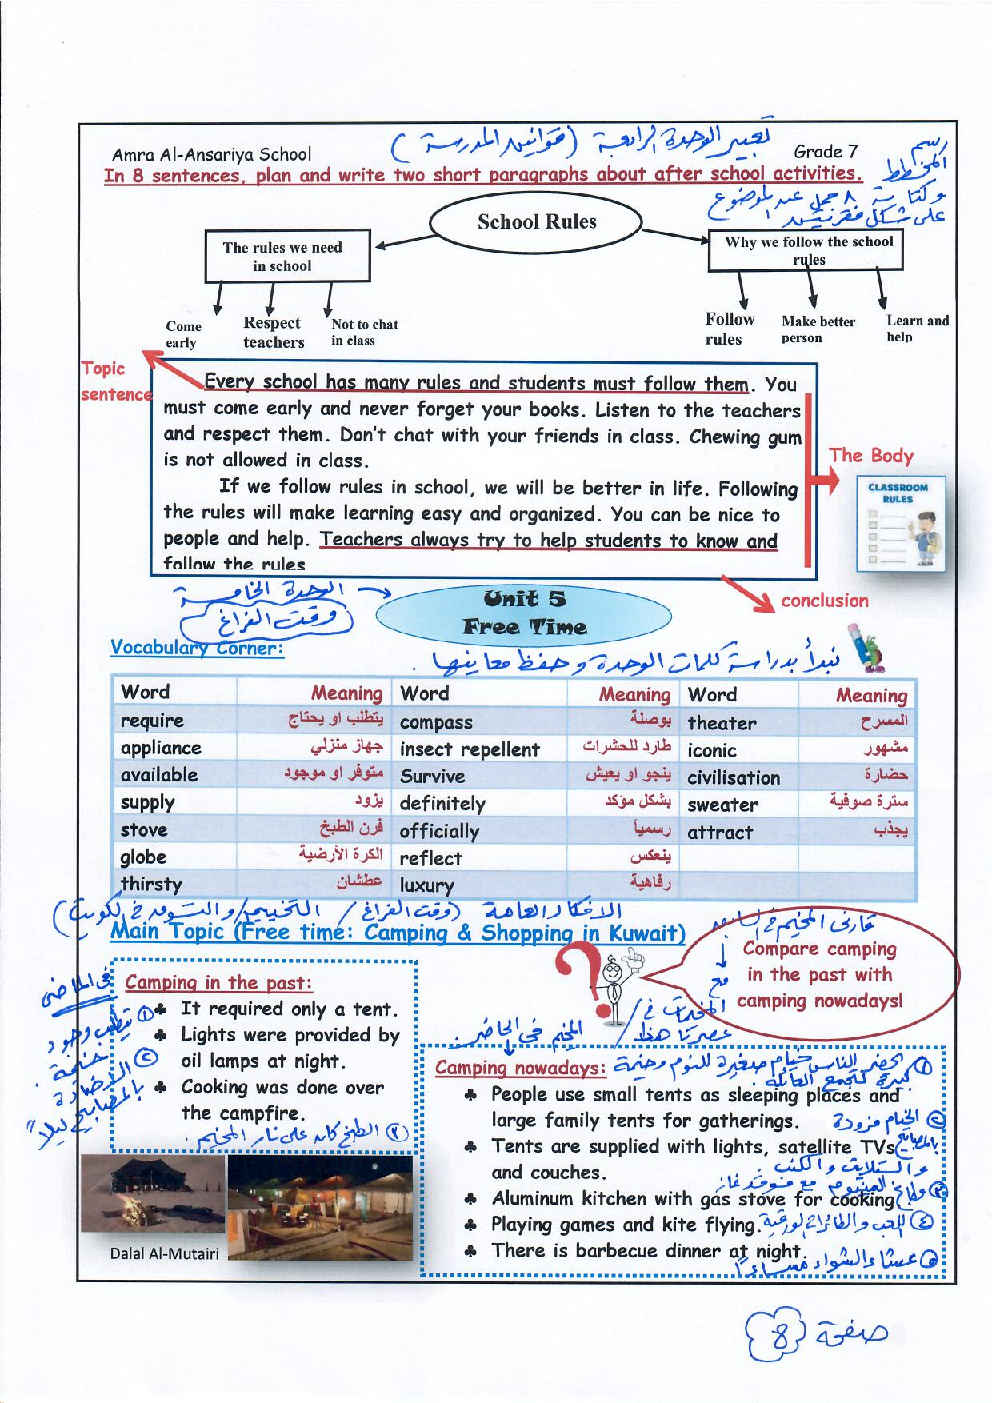 تعبير الوحدة الرابعة (قوانين المدرسة)
Amra Al-Ansariya School
Grade 7
In 8 sentences, plan and write two short paragraphs about after school activities.
رسم
المخطط
وكتابة ٨ جمل عن الموضوع
على شكل فقرتين
School Rules
The rules we need
in school
Why we follow the school
rules
Come
early
Respect
teachers
Not to chat
in class
Follow
rules
Make better
person
Learn and
help
Topic
sentence
Every school has many rules and students must follow them. You
must come early and never forget your books. Listen to the teachers
and respect them. Don't chat with your friends in class. Chewing gum
is not allowed in class.
If we follow rules in school, we will be better in life. Following
the rules will make learning easy and organized. You can be nice to
people and help. Teachers always try to help students to know and
follow the rules
The Body
CLASSROOM
RULES
conclusion
الوحدة الخامسة
وقت الفراغ
Unit 5
Free Time
Vocabulary Corner:
نبدأ بدراسة كلمات الوحدة وحفظ معانيها.
Word Meaning Word Meaning Word Meaning
require يتطلب او يحتاج compass بوصلة theater المسرح
appliance جهاز منزلي insect repellent طارد للحشرات iconic مشهور
available متوفر او موجود Survive ينجو او يعيش civilisation حضارة
supply يزود definitely بشكل مؤكد sweater سترة صوفية
stove فرن الطبخ officially رسمياً attract يجذب
globe الكرة الأرضية reflect ينعكس
thirsty عطشان luxury رفاهية
الافكار العامة (وقت الفراغ / التخييم والتسوق في الكويت)
Main Topic (Free time: Camping & Shopping in Kuwait)
قارني المخيم في السابق
مع
المخيمات في
عصرنا هذا
Compare camping
in the past with
camping nowadays!
في الماضي
Camping in the past:
♣ It required only a tent.
♣ Lights were provided by
oil lamps at night.
♣ Cooking was done over
the campfire.
① يتطلب وجود
خيمة.
② الإضاءة
بالمصابيح ليلاً
③ الطبخ كان على نار المخيم.
المخيم في الحاضر
Camping nowadays:
① يحضر الناس خيام صغيرة للنوم وخيمة
كبيرة لتجمع العائلة.
♣ People use small tents as sleeping places and
large family tents for gatherings.
② الخيام مزودة
بالمصابيح
♣ Tents are supplied with lights, satellite TVs
and couches.
والستلايت والكنب.
③ مطبخ المنيوم مع موقد غاز
♣ Aluminum kitchen with gas stove for cooking
♣ Playing games and kite flying.
④ اللعب والطائرات الورقية
♣ There is barbecue dinner at night.
⑤ عشاء الشواء مساءً
Dalal Al-Mutairi
صفحة 8